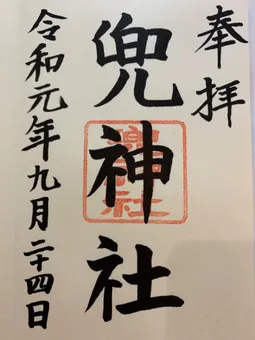 奉拝
兜神社
令和元年九月二十四日